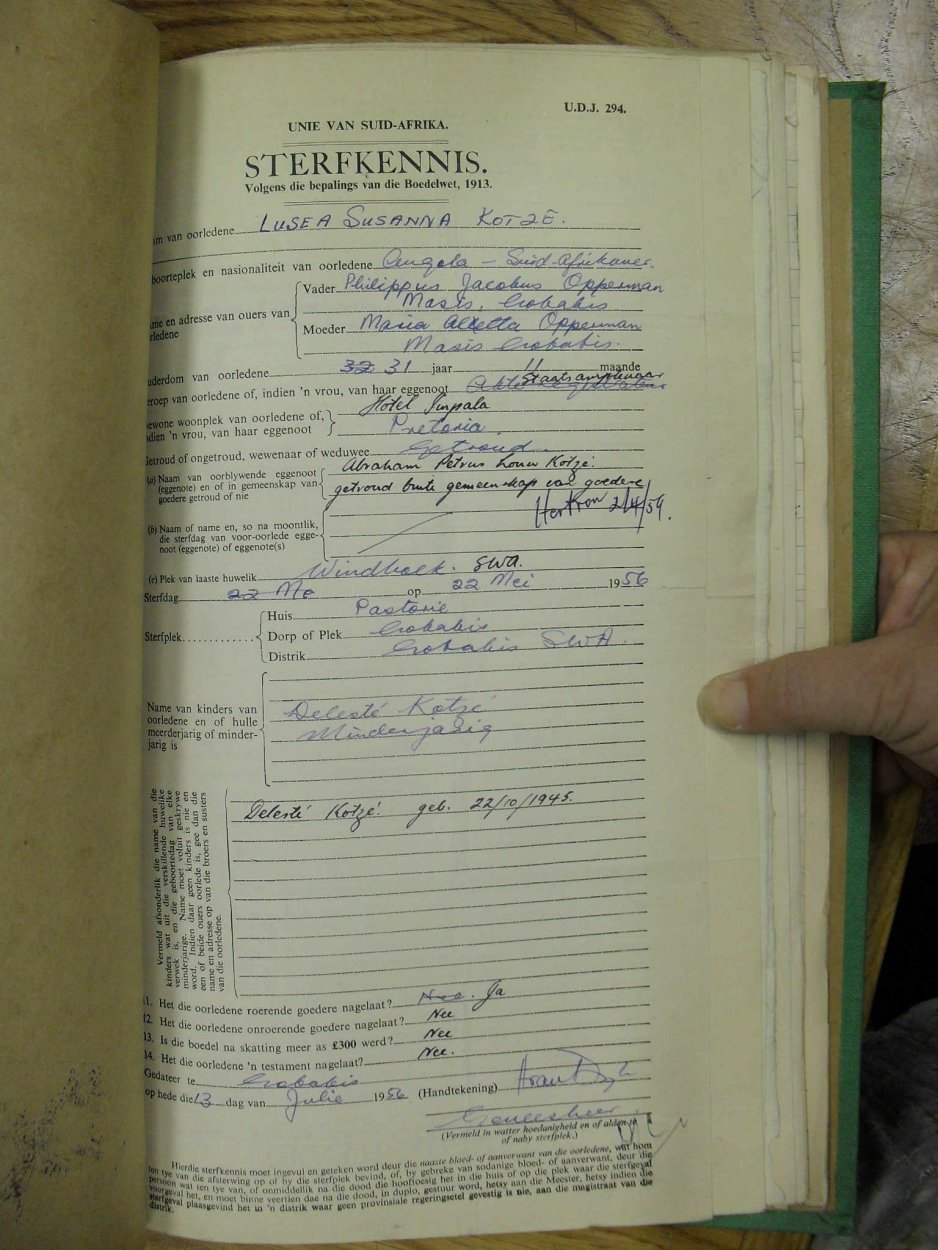 U.D.J. 294.
UNIE VAN SUID-AFRIKA.
STERFKENNIS.
Volgens die bepalings van die Boedelwet, 1913.
van oorledene LUSEA SUSANNA KOTZE.
boorteplek en nasionaliteit van oorledene Angola – Suid-Afrikaner.
me en adresse van ouers van
rledene
Vader Philippus Jacobus Opperman
Masis, Gobabis
Moeder Maria Aletta Opperman
Masis Gobabis.
derdom van oorledene 32 31 jaar 11 maande
eroep van oorledene of, indien 'n vrou, van haar eggenoot Staatsamptenaar
ewone woonplek van oorledene of,
ndien 'n vrou, van haar eggenoot
Hotel Impala
Pretoria.
Getroud of ongetroud, wewenaar of weduwee Getroud
(a) Naam van oorblywende eggenoot
(eggenote) en of in gemeenskap van
goedere getroud of nie
Abraham Petrus Louw Kotzé.
getroud buite gemeenskap van goedere
2/4/59.
(b) Naam of name en, so na moontlik,
die sterfdag van voor-oorlede egge-
noot (eggenote) of eggenote(s)
(c) Plek van laaste huwelik Windhoek. SWA.
Sterfdag 22 Me op 22 Mei 1956
Sterfplek
Huis Pastorie
Dorp of Plek Gobabis
Distrik Gobabis SWA.
Name van kinders van
oorledene en of hulle
meerderjarig of minder-
jarig is
Delesté Kotzé
Minderjarig
Vermeld afsonderlik die name van die
kinders wat uit die verskillende huwelike
verwek is, en die geboortedag van elke
minderjarige. Name moet voluit geskrywe
word. Indien daar geen kinders is nie en
een of beide ouers oorlede is, gee dan die
name en adresse op van die broers en susters
van die oorledene.
Delesté Kotzé. geb. 22/10/1945.
11. Het die oorledene roerende goedere nagelaat? Nee. Ja
12. Het die oorledene onroerende goedere nagelaat? Nee
13. Is die boedel na skatting meer as £300 werd? Nee
14. Het die oorledene 'n testament nagelaat? Nee.
Gedateer te Gobabis
op hede die 13 dag van Julie 1956 (Handtekening)
Geneesheer
(Vermeld in watter hoedanigheid en of aldan te
of naby sterfplek.)
Hierdie sterfkennis moet ingevul en geteken word deur die naaste bloed- of aanverwant van die oorledene, wat hom
ten tye van die afsterwing op of by die sterfplek bevind, of, by gebreke van sodanige bloed- of aanverwant, deur die
persoon wat ten tye van, of onmiddellik na die dood die hooftoesig het in die huis of op die plek waar die sterfgeval
voorgeval het, en moet binne veertien dae na die dood, in duplo, gestuur word, hetsy aan die Meester, hetsy indien die
sterfgeval plaasgevind het in 'n distrik waar geen provinsiale regeringsetel gevestig is nie, aan die magistraat van die
distrik.